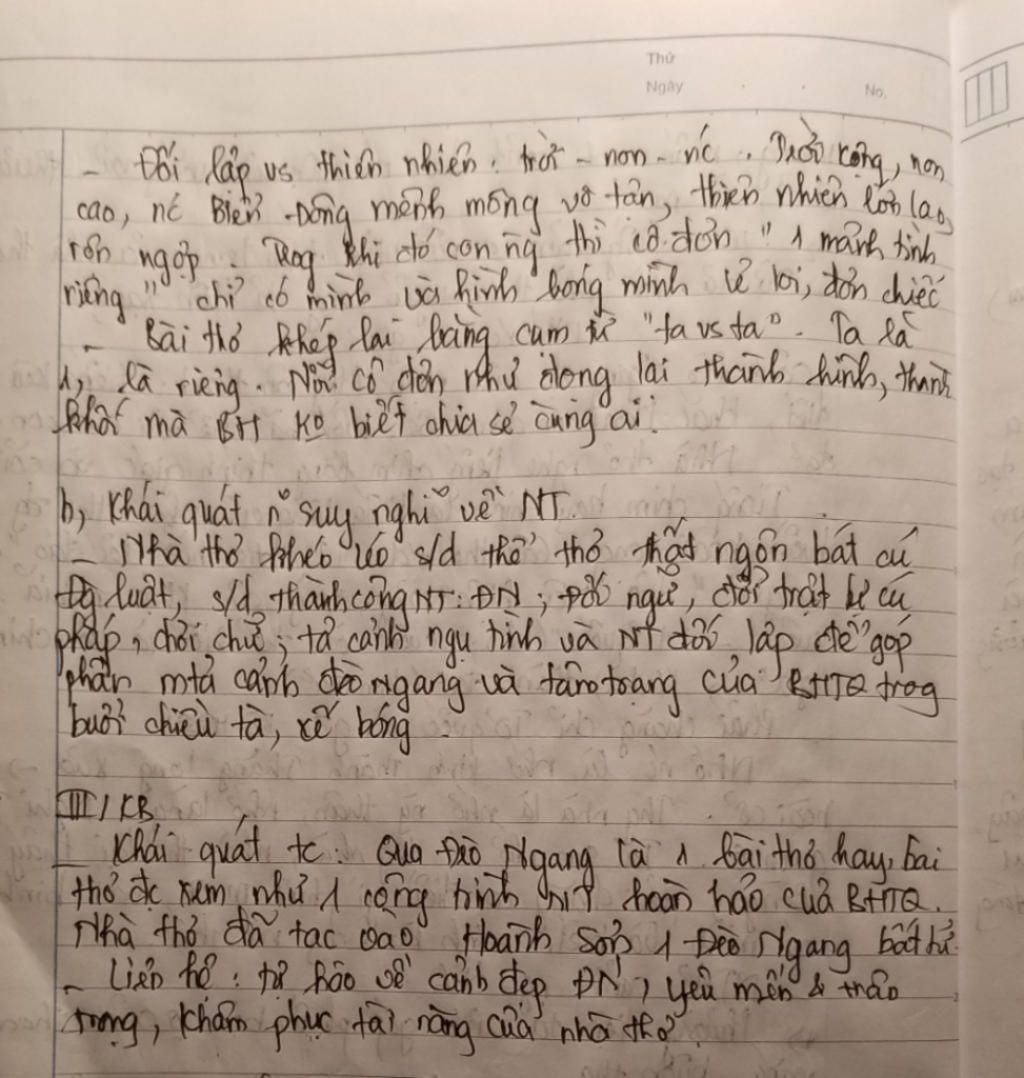 Thứ
Ngày
No.
- Đối lập vs thiên nhiên: trời - non - nc. Trời rộng, non
cao, nc Biển Đông mênh mông vô tận, thiên nhiên lớn lao,
rợn ngợp. Trog khi đó con ng thì cô đơn "1 mảnh tình
riêng" chỉ có mình và hình bóng mình lẻ loi, đơn chiếc
- Bài thơ khép lại bằng cụm từ "ta vs ta". Ta là
1, là riêng. Nỗi cô đơn như đọng lại thành hình, thành
khối mà BH ko biết chia sẻ cùng ai.
b, Khái quát n~ suy nghĩ về NT
- Nhà thơ khéo léo s/d thể thơ thất ngôn bát cú
Đg luật, s/d thành công NT: ĐN; Đối ngữ, đổi trật tự cú
pháp, chơi chữ; tả cảnh ngụ tình và NT đối lập để góp
phần mtả cảnh đèo Ngang và tâm trạng của BHTQ trog
buổi chiều tà, xế bóng.
III/ KB
- Khái quát tc: Qua Đèo Ngang là 1 bài thơ hay, bài
thơ đc xem như 1 công trình NT hoàn hảo của BHTQ.
Nhà thơ đã tạc vào Hoành Sơn 1 Đèo Ngang bất hủ
- Liên hệ: tự hào về cảnh đẹp ĐN, yêu mến & trân
trọng, khâm phục tài năng của nhà thơ.